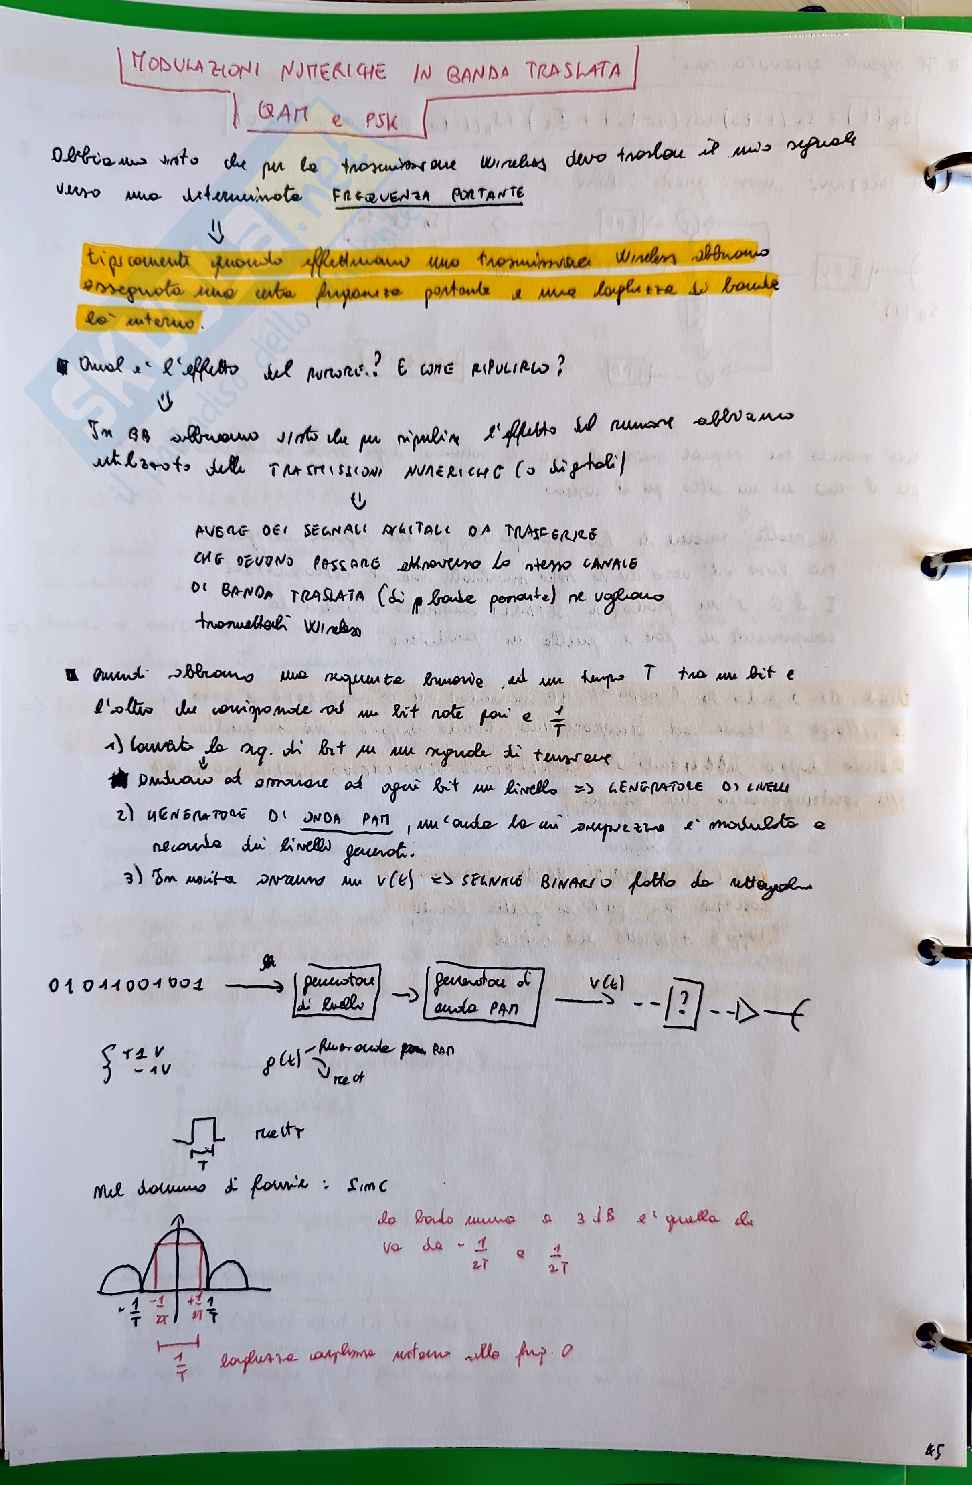 MODULAZIONI NUMERICHE IN BANDA TRASLATA
QAM e PSK
Abbiamo visto che per la trasmissione wireless devo traslare il mio segnale
verso una determinata FREQUENZA PORTANTE
⇓
tipicamente quando effettuiamo una trasmissione wireless abbiamo
assegnata una certa frequenza portante e una larghezza di banda
intorno.
Qual è l'effetto del RUMORE? E COME RIPULIRLO?
⇓
In BB abbiamo visto che per ripulire l'effetto del rumore abbiamo
utilizzato delle TRASMISSIONI NUMERICHE (o digitali)
⇓
AVERE DEI SEGNALI DIGITALI DA TRASFERIRE
CHE DEVONO PASSARE attraverso lo stesso CANALE
DI BANDA TRASLATA (di banda passante) se vogliamo
trasmetterli wireless
Quindi abbiamo una sequenza binaria, ed un tempo T tra un bit e
l'altro che corrisponde ad un bit rate pari a 1/T
1) Converto la seq. di bit in un segnale di tensione
Andiamo ad associare ad ogni bit un livello => GENERATORE DI LIVELLI
2) GENERATORE DI ONDA PAM, un'onda la cui ampiezza è modulata a
seconda dei livelli generati.
3) In uscita avremo un v(t) => SEGNALE BINARIO fatto da rettangoli
01011001001
generatore di livello
generatore di onda PAM
v(t)
?
{ +1 V
-1V
g(t)
PAM
rect
rect T
T
Nel dominio di Fourier : Sinc
la banda a 3 dB è quella che
va da -1/2T a 1/2T
-1/T -1/2T +1/2T 1/T
1/T larghezza intorno alla freq. 0
45
skuola.net
il paradiso dello studente